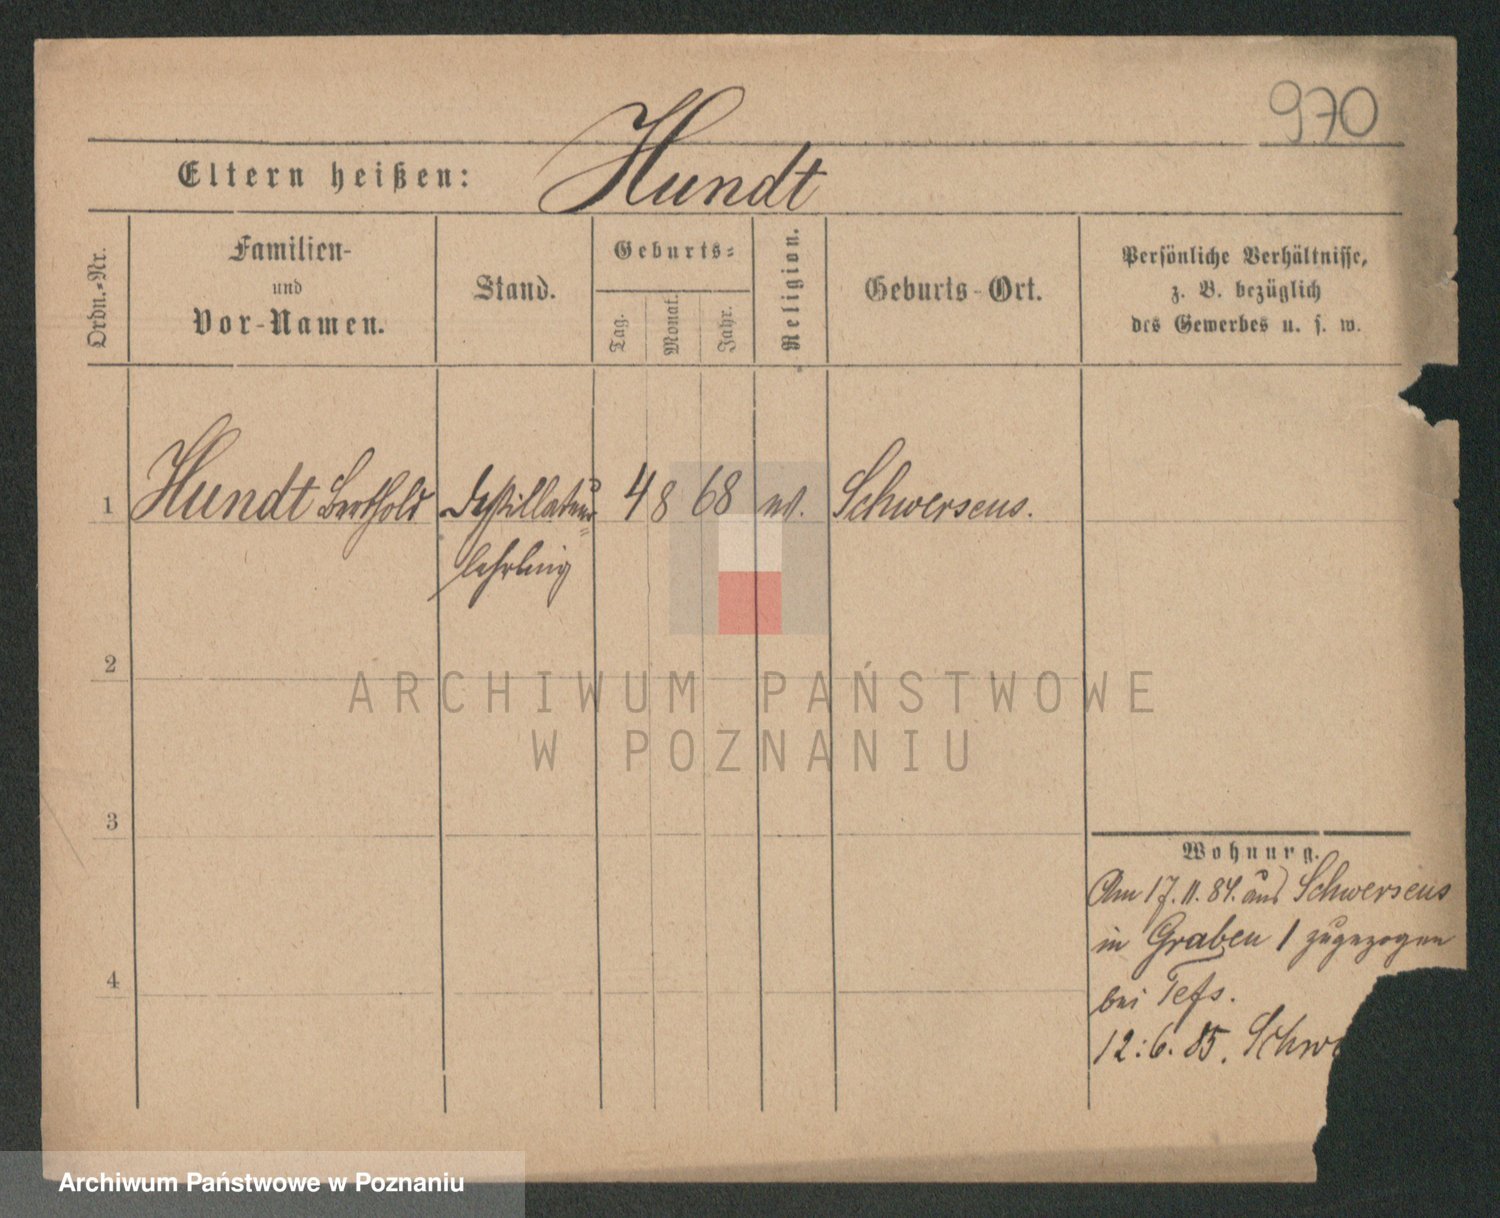 970
Eltern heißen: Hundt
Ordn.-Nr.
Familien-
und
Vor-Namen.
Stand.
Geburts-
Tag.
Monat.
Jahr.
Religion.
Geburts-Ort.
Persönliche Verhältnisse,
z. B. bezüglich
des Gewerbes u. s. w.
1 Hundt Berthold Destillateur= 4 8 68 Schwersens.
lehrling
2
3
4
Wohnung.
Am 17.11.84. aus Schwersens
in Graben 1 zugezogen
bei
12.6.85. Schwe
ARCHIWUM PAŃSTWOWE
W POZNANIU
Archiwum Państwowe w Poznaniu